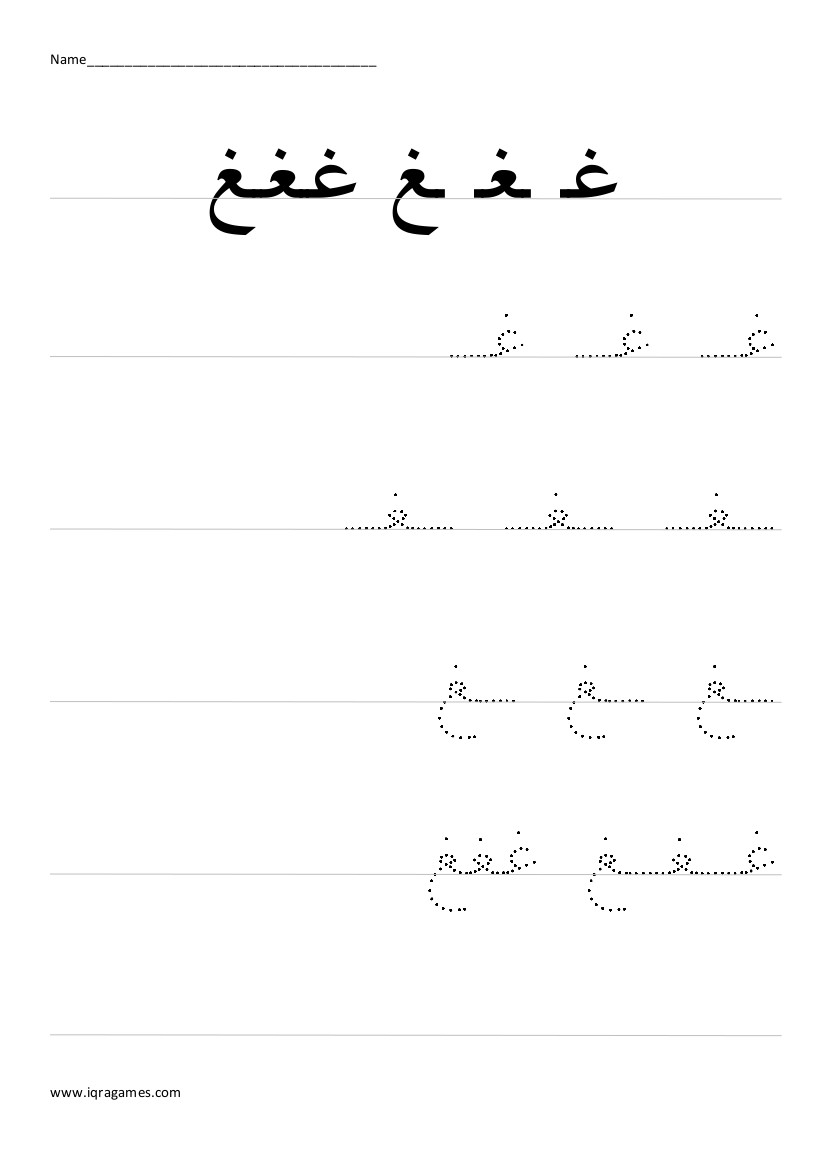 Name______________________________________
غـ ـغـ ـغ غغغ
غـ غـ غـ
ـغـ ـغـ ـغـ
ـغ ـغ ـغ
غـغـغ غغغ
www.iqragames.com